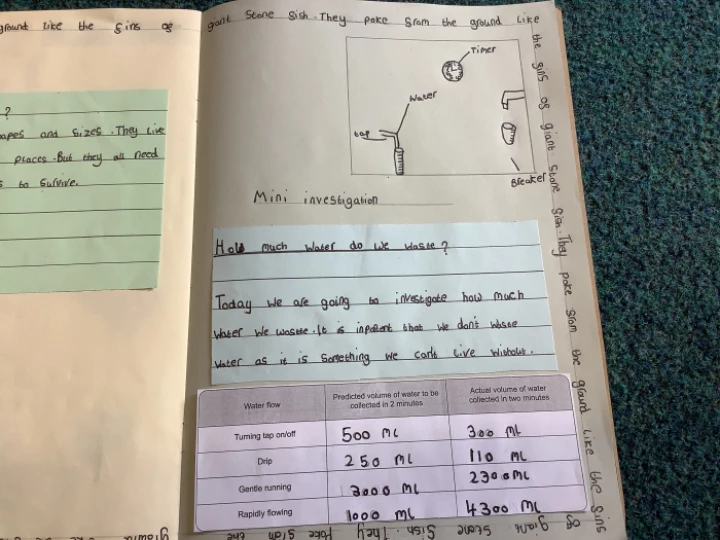 ground like the sins og
giant Stone Sish. They poke Srom the ground like
the sins og giant Stone Sish. They poke Srom the ground like the sins
og giant Stone Sish. They poke Srom the
?
apes and Sizes. They live
places. But they all need
s to Survive.
Timer
Water
tap
Breaker
Mini investigation
How much water do we waste?
Today we are going to investigate how much
water we waste. It is inpotent that we don't waste
water as it is something we can't live without.
Water flow
Predicted volume of water to be collected in 2 minutes
Actual volume of water collected in two minutes
Turning tap on/off 500 ML 300 ML
Drip 250 ML 110 ML
Gentle running 3000 ML 2300 ML
Rapidly flowing 1000 ML 4300 ML